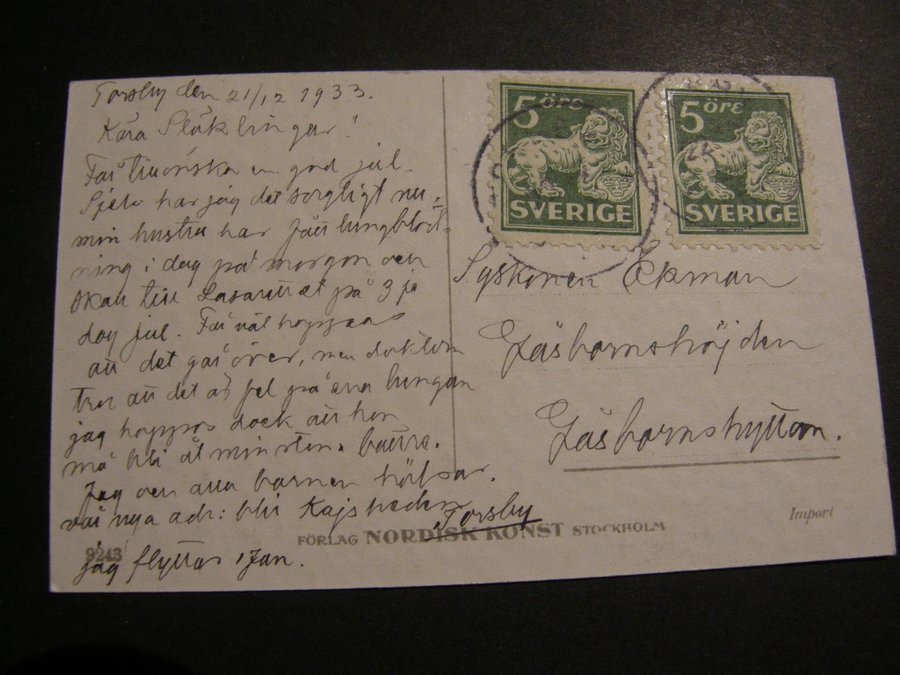 Torsby den 21/12 1933.
Kära Släktingar!
Får tillönska en god jul.
Själv har jag det sorgligt nu
min hustru har fått lungblöd-
ning i dag på morgon och
skall till Lasarettet på 3 je
dag jul. Får väl hoppas
att det går över, men doktorn
tror att det är fel på ena lungan
jag hoppas dock att hon
må bli åtminstone bättre.
Jag och alla barnen hälsar.
vår nya adr: blir Kajsheden
Torsby
jag flyttar i Jan.
5 öre
SVERIGE
5 öre
SVERIGE
Syskonen Ekman
Gåsbornshöjden
Gåsbornshyttan.
FÖRLAG NORDISK KONST STOCKHOLM
Import
9243